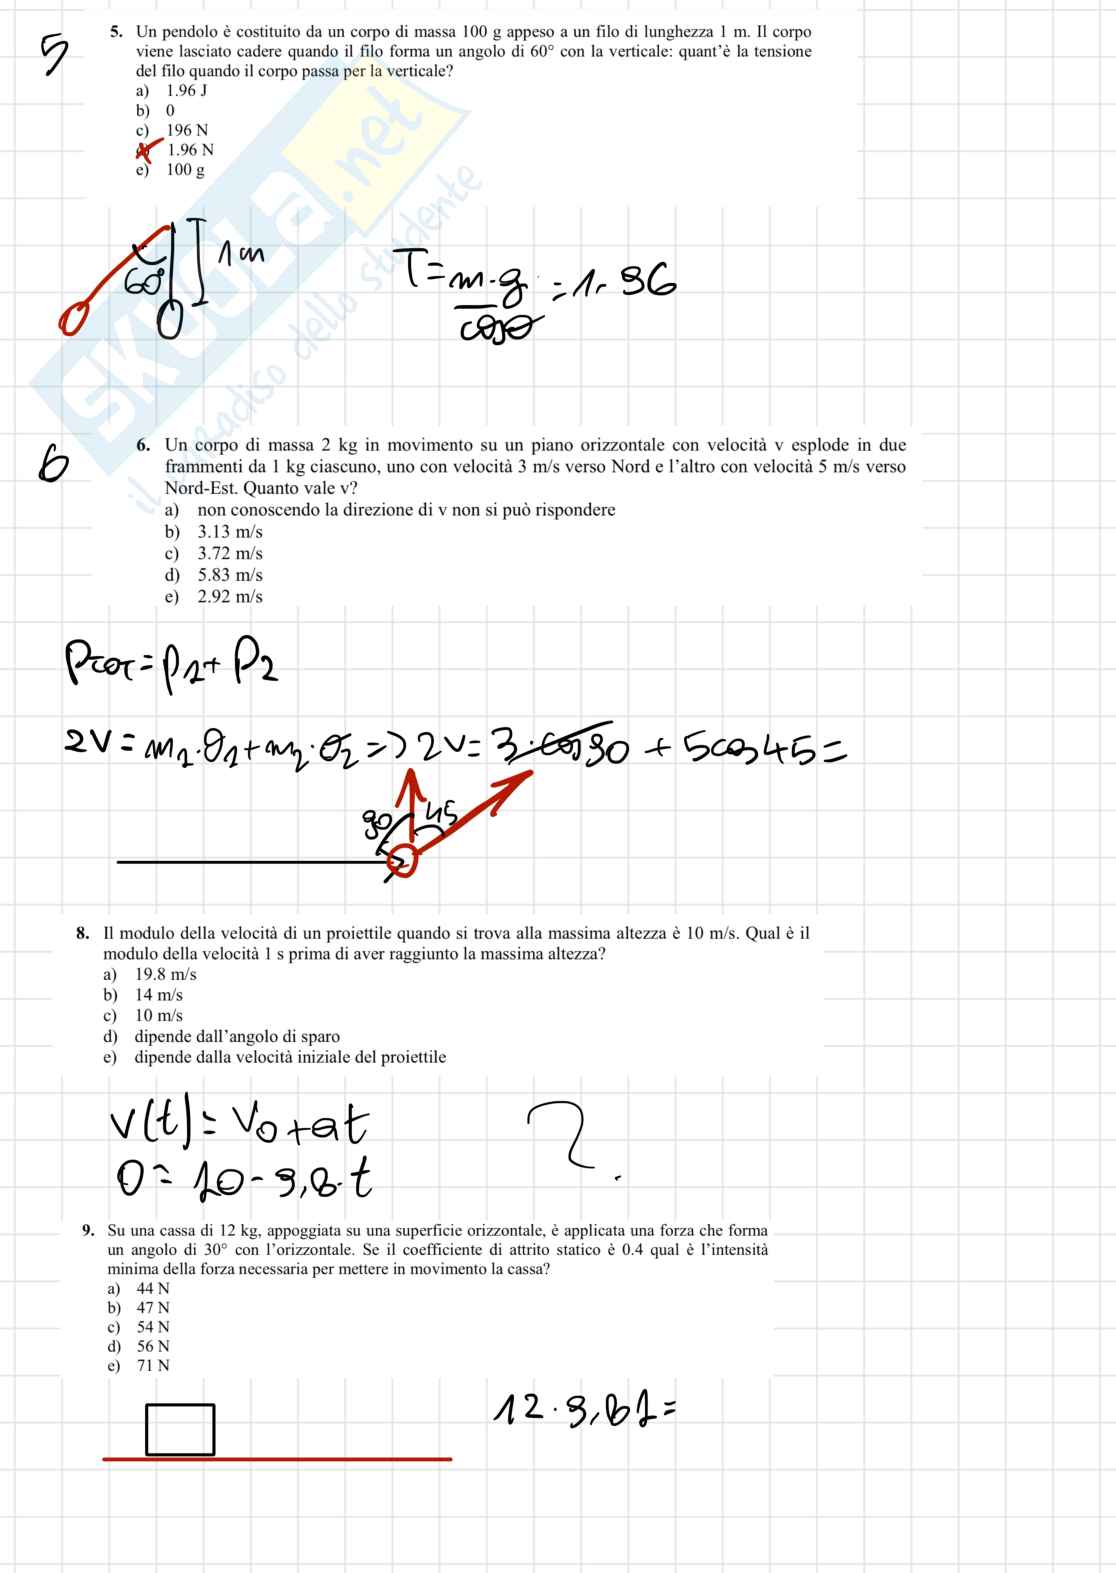 5
5. Un pendolo è costituito da un corpo di massa 100 g appeso a un filo di lunghezza 1 m. Il corpo
viene lasciato cadere quando il filo forma un angolo di 60° con la verticale: quant'è la tensione
del filo quando il corpo passa per la verticale?
a) 1.96 J
b) 0
c) 196 N
1.96 N
e) 100 g
60°
1 m
T = m·g / cosθ = 1.96
SKUOLA.net
il paradiso dello studente
6
6. Un corpo di massa 2 kg in movimento su un piano orizzontale con velocità v esplode in due
frammenti da 1 kg ciascuno, uno con velocità 3 m/s verso Nord e l'altro con velocità 5 m/s verso
Nord-Est. Quanto vale v?
a) non conoscendo la direzione di v non si può rispondere
b) 3.13 m/s
c) 3.72 m/s
d) 5.83 m/s
e) 2.92 m/s
PTOT = P1 + P2
2V = m1·v1 + m2·v2 => 2V = 3·cos90 + 5cos45 =
90
45
8. Il modulo della velocità di un proiettile quando si trova alla massima altezza è 10 m/s. Qual è il
modulo della velocità 1 s prima di aver raggiunto la massima altezza?
a) 19.8 m/s
b) 14 m/s
c) 10 m/s
d) dipende dall'angolo di sparo
e) dipende dalla velocità iniziale del proiettile
v(t) = v0 + at
?
0 = 10 - 9,8·t
9. Su una cassa di 12 kg, appoggiata su una superficie orizzontale, è applicata una forza che forma
un angolo di 30° con l'orizzontale. Se il coefficiente di attrito statico è 0.4 qual è l'intensità
minima della forza necessaria per mettere in movimento la cassa?
a) 44 N
b) 47 N
c) 54 N
d) 56 N
e) 71 N
12·9,81 =